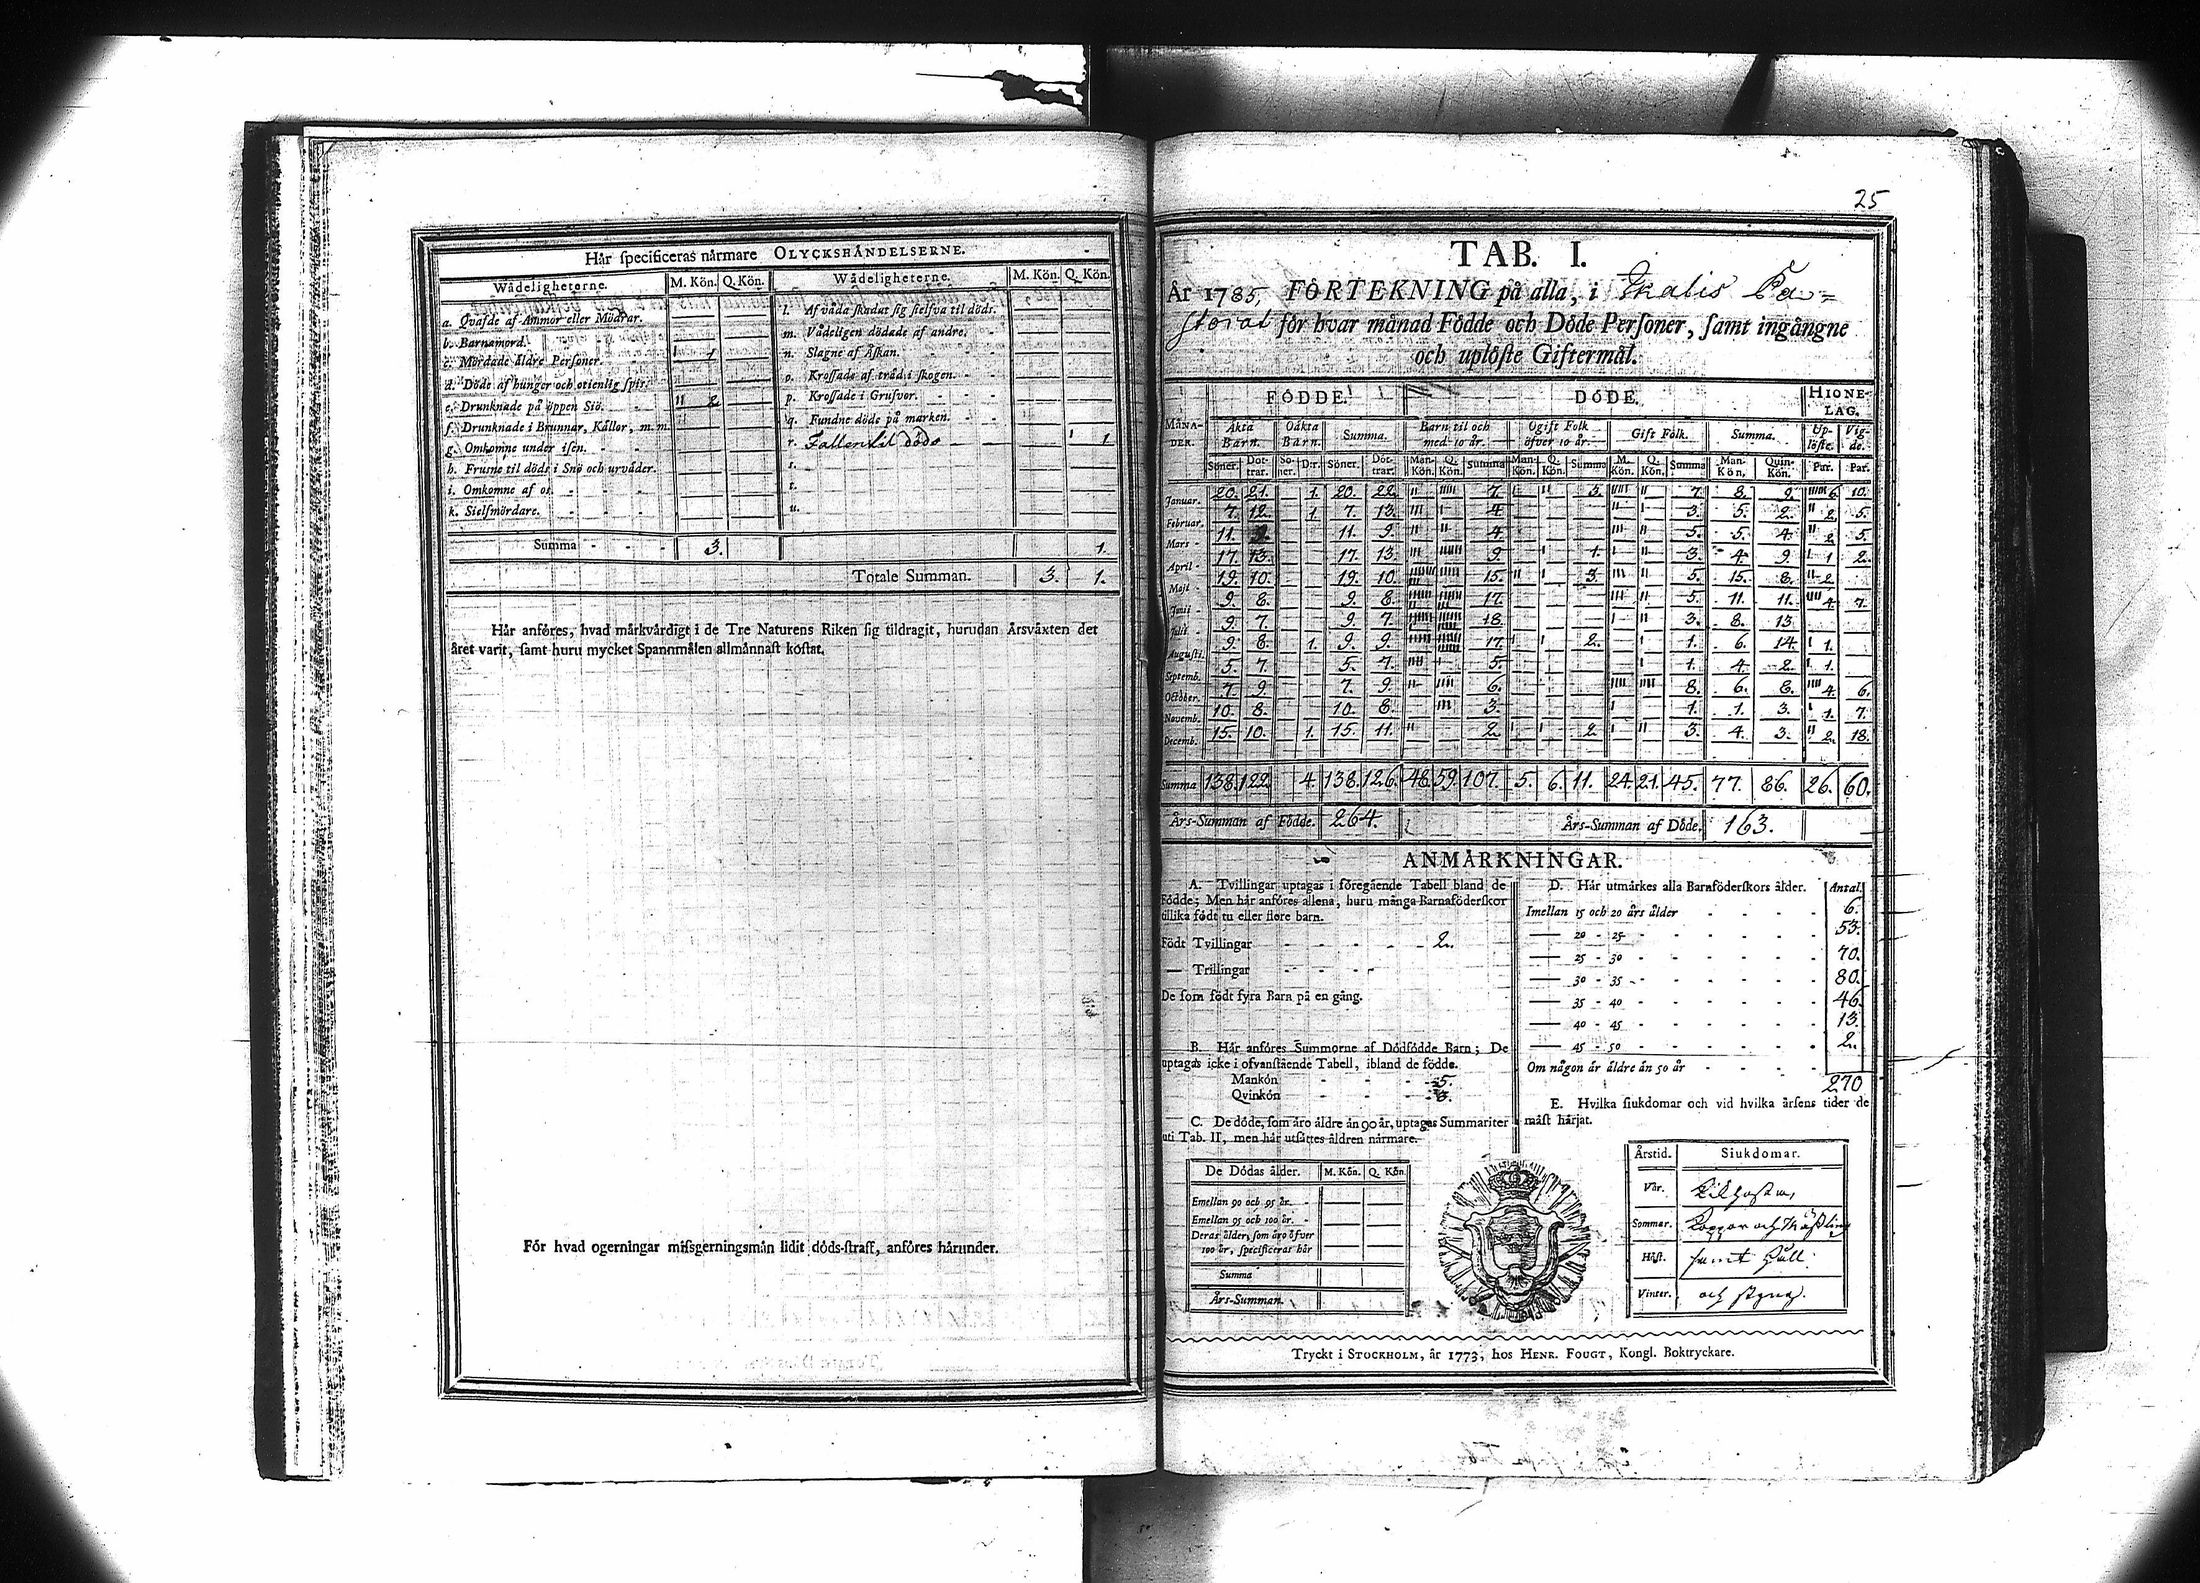 Hår specificeras nårmare OLYCKSHÅNDELSERNE.
Wådeligheterne. M. Kön. Q. Kön. Wådeligheterne. M. Kön. Q. Kön.
a. Qvafde af Ammor eller Mödrar.
b. Barnamord.
c. Mördade åldre Personer. 1
d. Döde af hunger och otienlig spis.
e. Drunknade på öppen Siö. 2
f. Drunknade i Brunnar, Kållor, m.m.
g. Omkomne under isen.
h. Frusne til döds i Snö och urvåder.
i. Omkomne af os.
k. Sielfmördare.
l. Af våda skadat sig sielfva til döds.
m. Vådeligen dödade af andre.
n. Slagne af Åskan.
o. Krossade af tråd i skogen.
p. Krossade i Grufvor.
q. Fundne döde på marken.
r. Fallen til döds 1
s.
t.
u.
Summa 3. 1.
Totale Summan. 3. 1.
Hår anföres, hvad mårkvårdigt i de Tre Naturens Riken sig tildragit, hurudan Årsvåxten det
året varit, samt huru mycket Spannmålen allmånnast kostat.
För hvad ogerningar missgerningsmån lidit döds-straff, anföres hårunder.
25
TAB. I.
År 1785, FÖRTEKNING på alla, i Ikalis Pa=
storat för hvar månad Födde och Döde Personer, samt ingångne
och uplöste Giftermål.
FÖDDE. DÖDE. HIONE-
LAG.
MÅNA-
DER. Åkta
Barn. Oåkta
Barn. Summa. Barn til och
med 10 år. Ogift Folk
öfver 10 år. Gift Folk. Summa. Up-
löste. Vig-
de.
Söner. Döt-
trar. Sö-
ner. D:r. Söner. Döt-
trar. Man-
Kön. Q.
Kön. Summa Man-
Kön. Q.
Kön. Summa M.
Kön. Q.
Kön. Summa Man-
Kön. Quin-
Kön. Par. Par.
Januar. 20. 21. 1. 20. 22. 7. 3. 7. 8. 9. 6. 10.
Februar. 7. 12. 1. 7. 13. 4. 3. 5. 2. 2. 5.
Mars 11. 9. 11. 9. 4. 5. 5. 4. 2. 5.
April 17. 13. 17. 13. 9. 1. 3. 4. 9. 1 2.
Maji 19. 10. 19. 10. 15. 3. 5. 15. 8. 2.
Junii 9. 8. 9. 8. 17. 5. 11. 11. 4. 7.
Julii 9. 7. 9. 7. 18. 3. 8. 13.
Augusti. 9. 8. 1. 9. 9. 17. 2. 1. 6. 14. 1.
Septemb. 5. 7. 5. 7. 5. 1. 4. 2. 1.
October. 7. 9. 7. 9. 6. 8. 6. 8. 4. 6.
Novemb. 10. 8. 10. 8. 3. 1. 1. 3. 1. 7.
Decemb. 15. 10. 1. 15. 11. 2. 2. 3. 4. 3. 2. 18.
Summa 138. 122. 4. 138. 126. 48. 59. 107. 5. 6. 11. 24. 21. 45. 77. 86. 26. 60.
Års-Summan af Födde. 264. Års-Summan af Döde. 163.
ANMÅRKNINGAR.
A. Tvillingar uptagas i föregående Tabell bland de
Födde; Men hår anföres allena, huru många Barnaföderskor
tillika födt tu eller flere barn.
Födt Tvillingar 2.
— Trillingar
De som födt fyra Barn på en gång.
B. Hår anföres Summorne af Dödfödde Barn; De
uptagas icke i ofvanstående Tabell, ibland de födde.
Mankön 5.
Qvinkön 3.
C. De döde, som åro åldre ån 90 år, uptagas Summariter
uti Tab. II, men hår utsåttes åldren nårmare.
De Dödas ålder. M. Kön. Q. Kön.
Emellan 90 och 95 år.
Emellan 95 och 100 år.
Deras ålder, som åro öfver
100 år, specificeras hår
Summa
Års-Summan.
D. Hår utmårkes alla Barnföderskors ålder. Antal.
Imellan 15 och 20 års ålder 6.
— 20 - 25 53.
— 25 - 30 70.
— 30 - 35 80.
— 35 - 40 46.
— 40 - 45 13.
— 45 - 50 2.
Om någon år åldre ån 50 år
270
E. Hvilka siukdomar och vid hvilka årsens tider de
måst hårjat.
Årstid. Siukdomar.
Vår. Kikhosta,
Sommar. Koppor och Mäßling
Höst. samt Håll.
Vinter. och styng.
Tryckt i STOCKHOLM, år 1773, hos HENR. FOUGT, Kongl. Boktryckare.